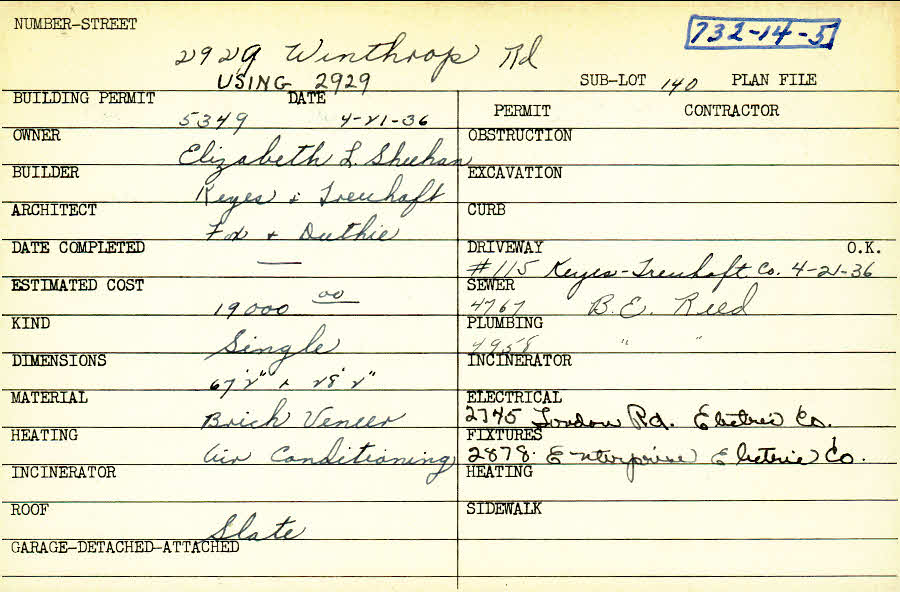 NUMBER-STREET
732-14-5
2929 Winthrop Rd
USING 2929
SUB-LOT 140 PLAN FILE
BUILDING PERMIT DATE
5349 4-21-36
PERMIT CONTRACTOR
OWNER
Elizabeth L. Sheehan
OBSTRUCTION
BUILDER
Keyes & Treuhaft
EXCAVATION
ARCHITECT
Fox + Duthie
CURB
DATE COMPLETED
—
DRIVEWAY O.K.
#115 Keyes-Treuhaft Co. 4-21-36
ESTIMATED COST
19000 00
SEWER
4767 B.E. Reed
KIND
Single
PLUMBING
4958 " "
DIMENSIONS
67'2" x 28'2"
INCINERATOR
MATERIAL
Brick Veneer
ELECTRICAL
2745 London Rd. Electric Co.
HEATING
Air Conditioning
FIXTURES
2878. Enterprise Electric Co.
INCINERATOR
HEATING
ROOF
Slate
SIDEWALK
GARAGE-DETACHED-ATTACHED